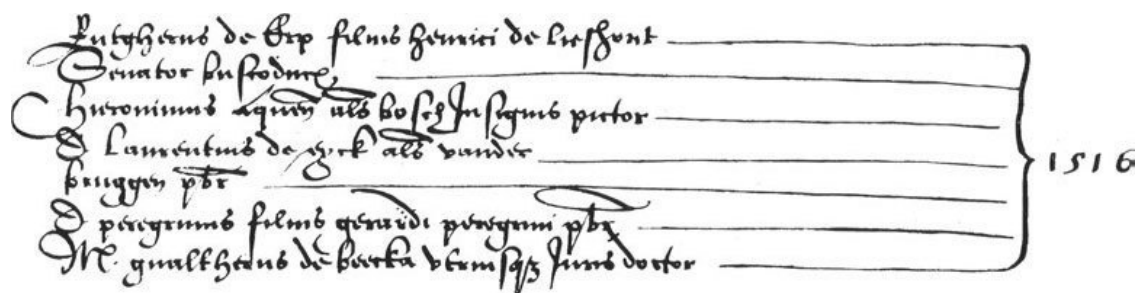 Rutgherus de Erp filius henrici de Lieshout
Senator buscoducen
Hieronimus Aquen als bosch Insignis pictor
D Laurentius de eyck als vander
bruggen pbr
D peregrinus filius gerardi peregrini pbr
M. gualtherus de beecka vtriusqz Juris doctor
1516